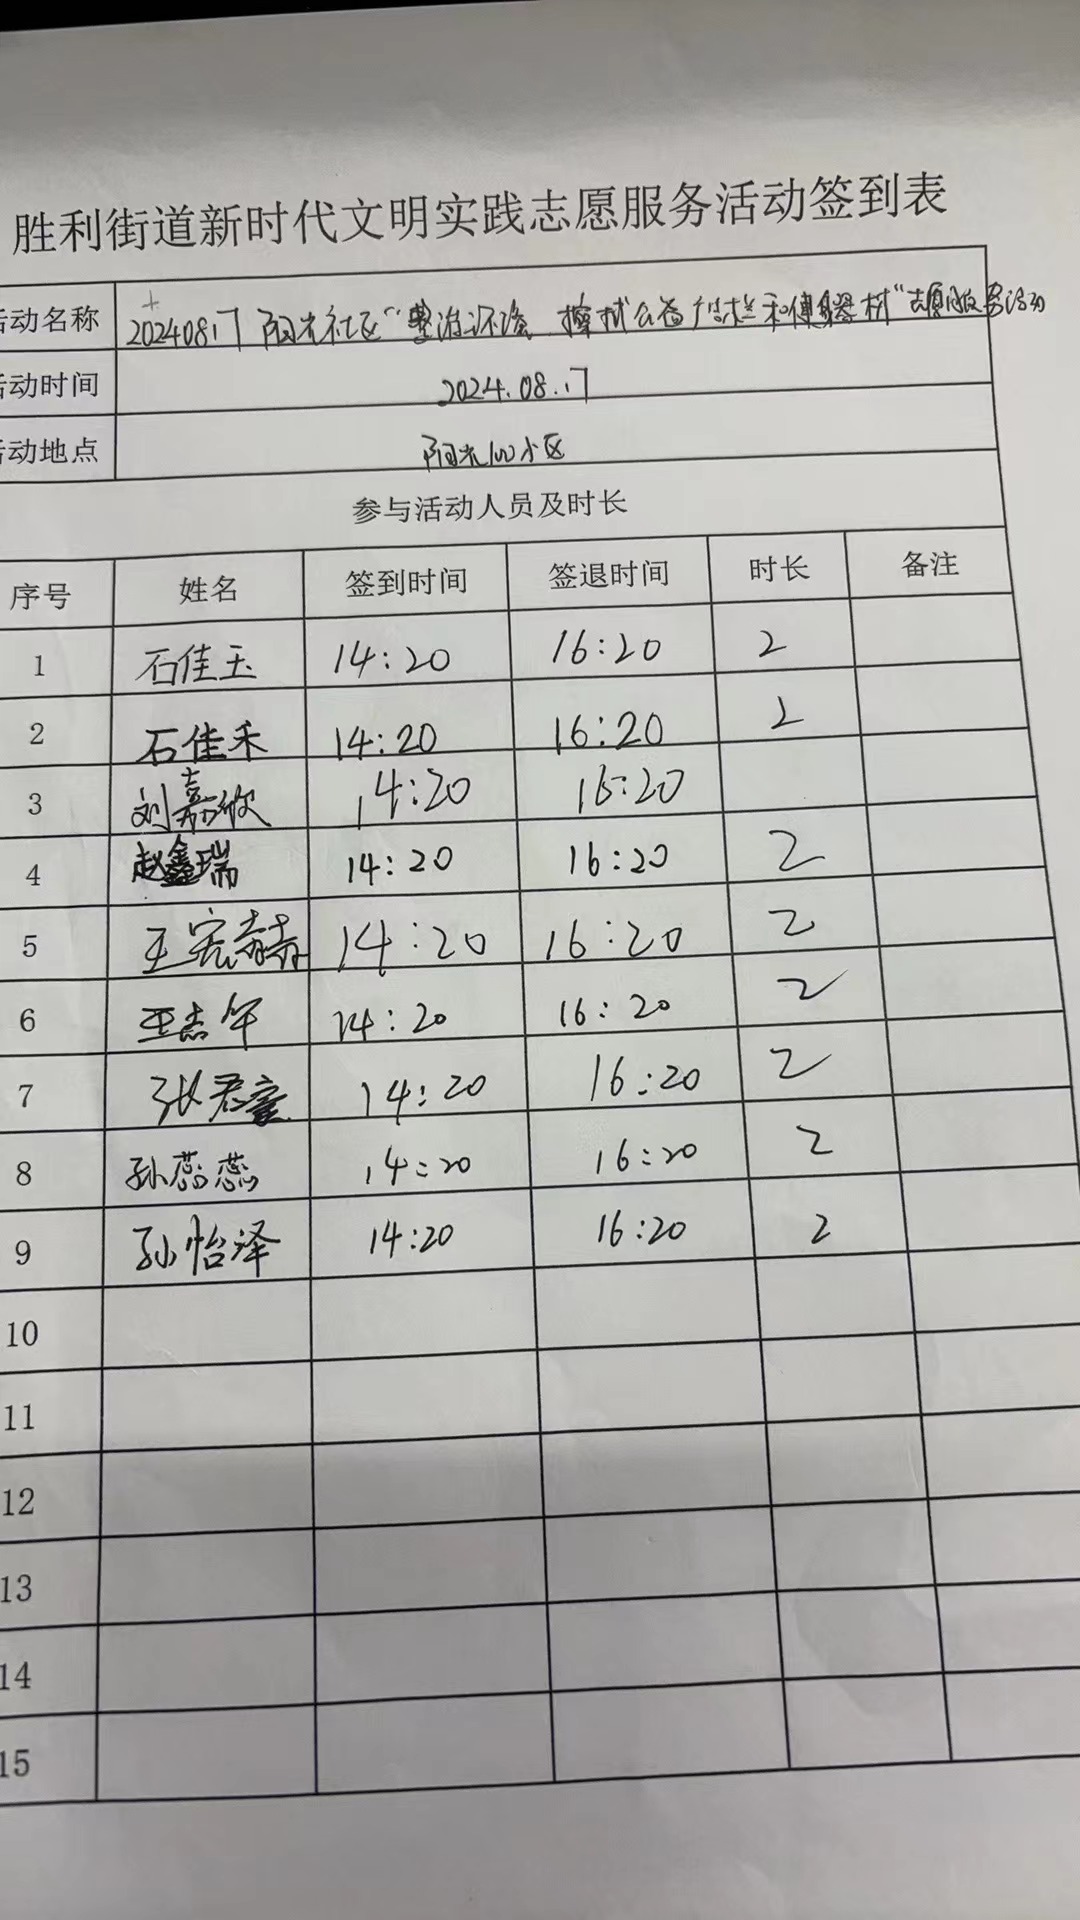 胜利街道新时代文明实践志愿服务活动签到表
活动名称 20240817 阳光社区“整治环境、擦拭公告栏和健身器材”志愿服务活动
活动时间 2024.08.17
活动地点 阳光100小区
参与活动人员及时长
序号 姓名 签到时间 签退时间 时长 备注
1 石佳玉 14:20 16:20 2
2 石佳禾 14:20 16:20 2
3 刘嘉欣 14:20 16:20
4 赵鑫瑞 14:20 16:20 2
5 王宪 14:20 16:20 2
6 14:20 16:20 2
7 张君童 14:20 16:20 2
8 孙蕊蕊 14:20 16:20 2
9 孙怡泽 14:20 16:20 2
10
11
12
13
14
15